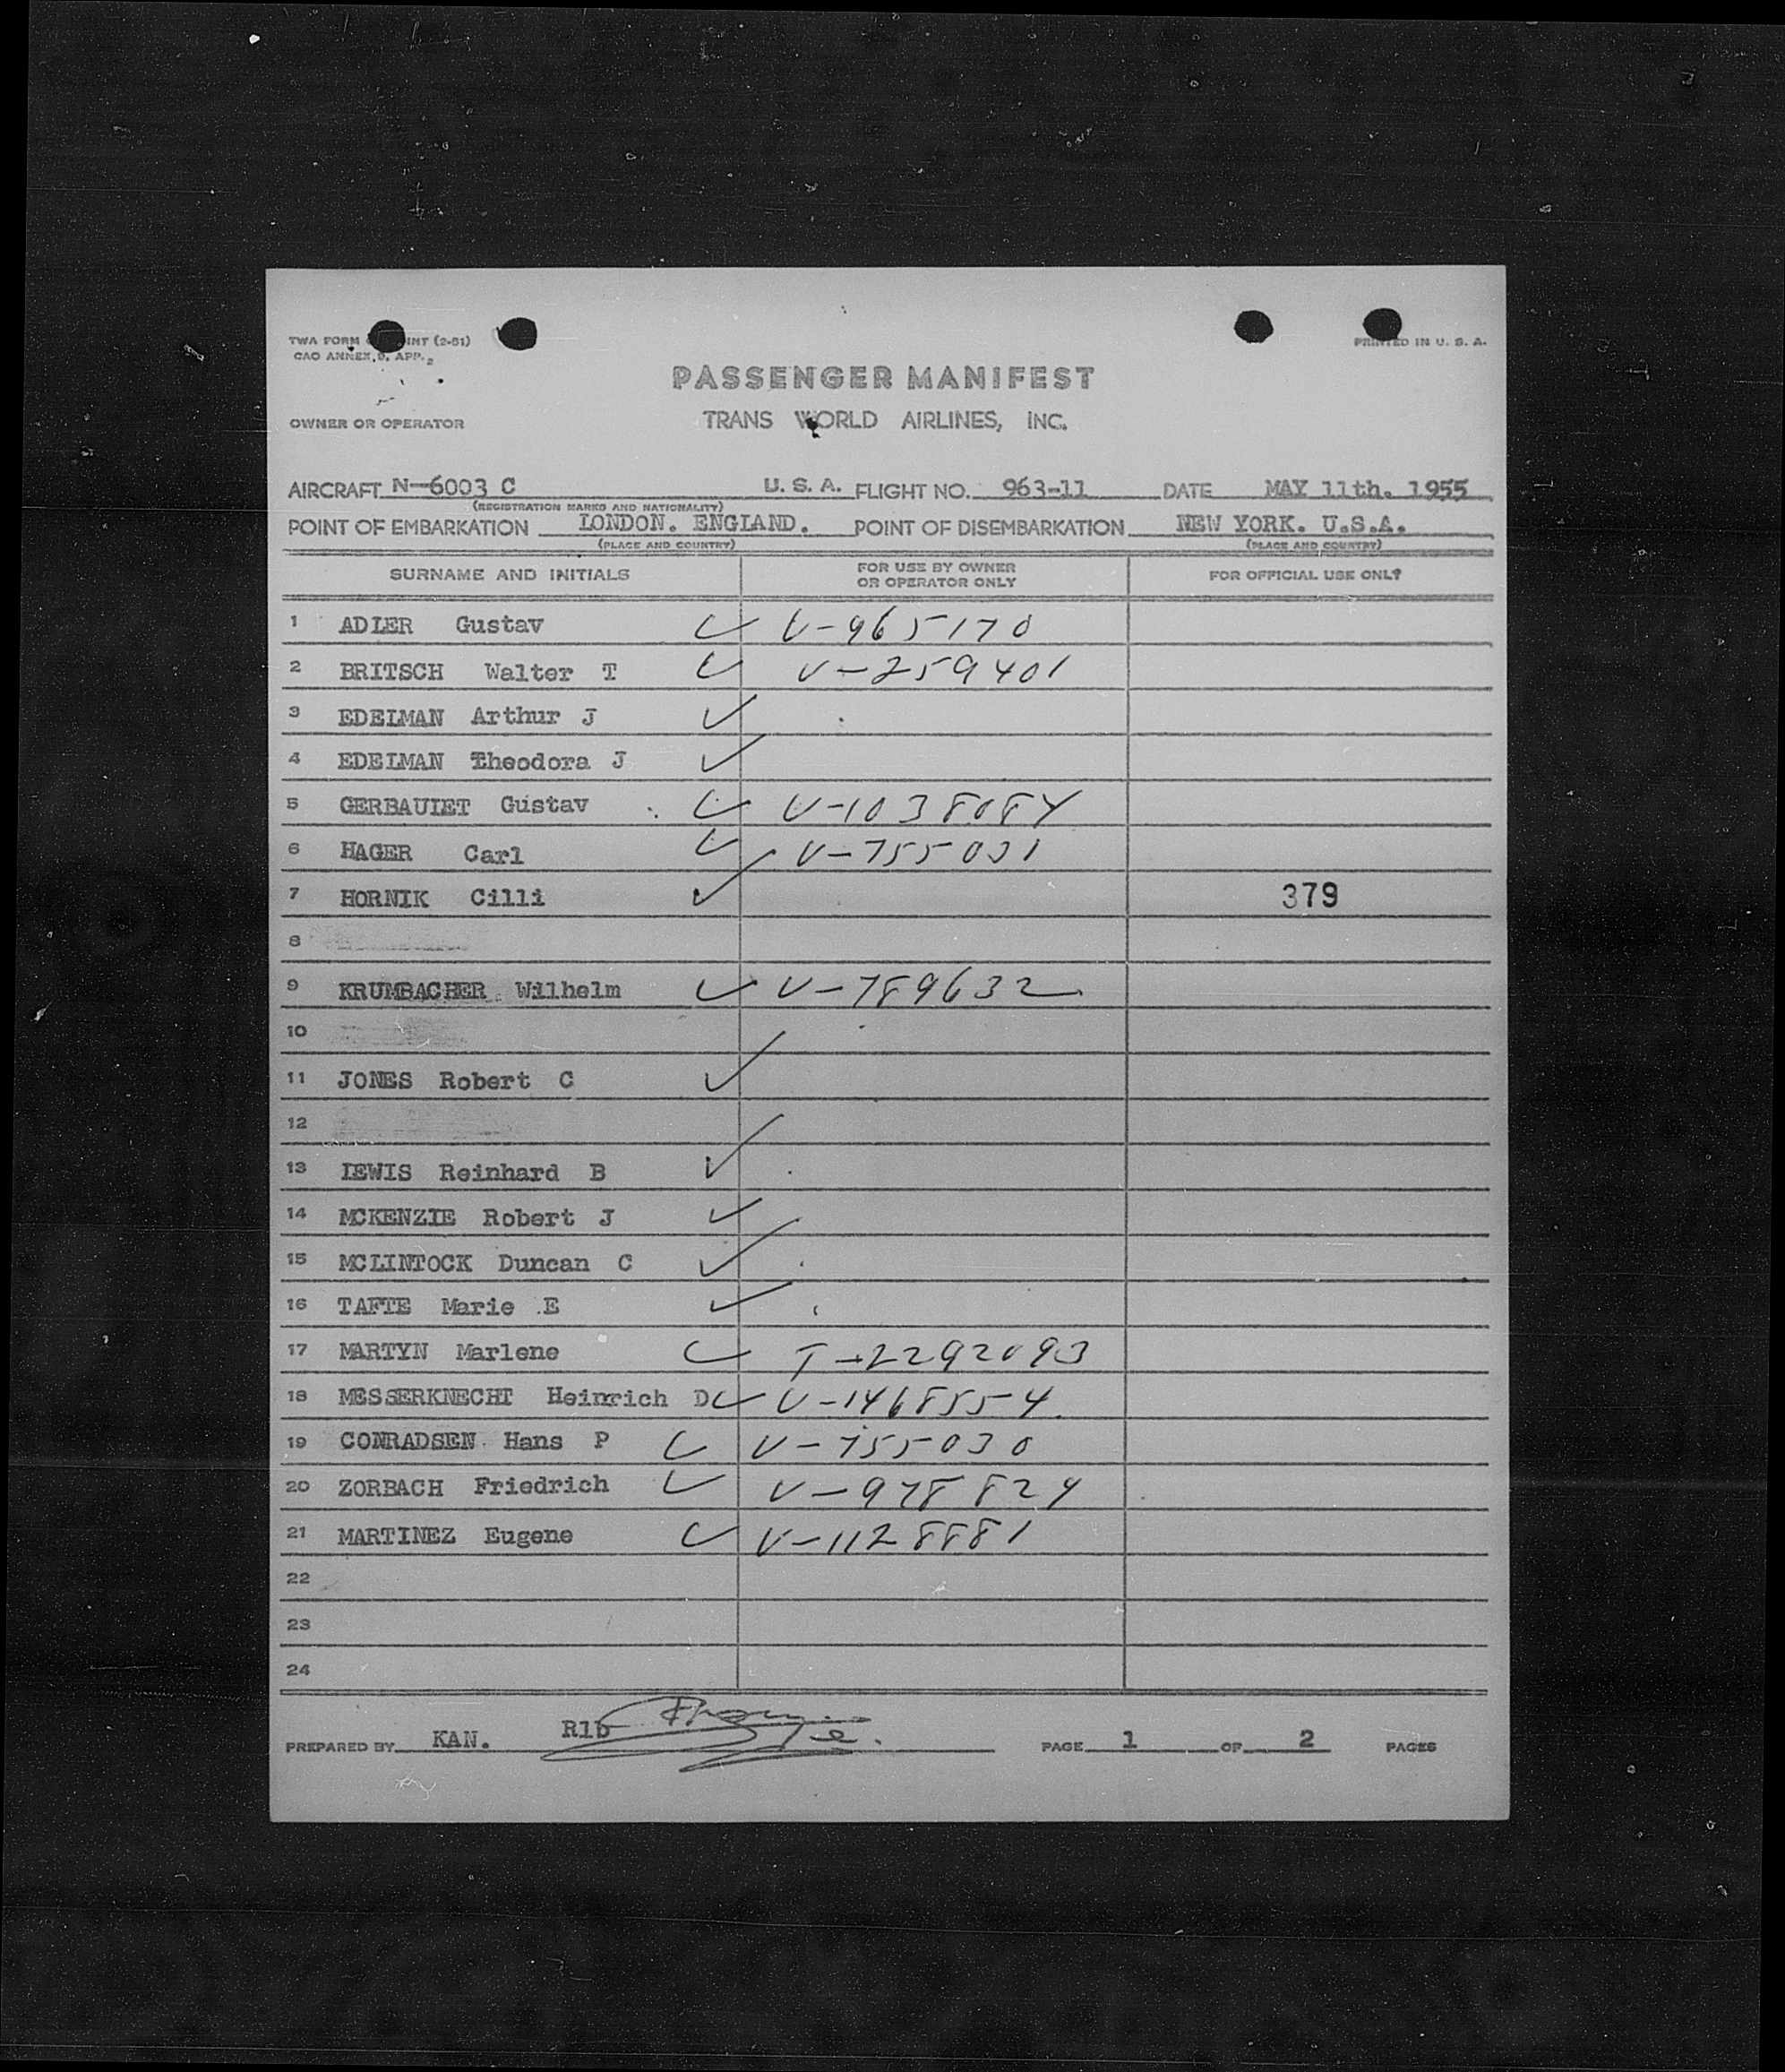 TWA FORM INT (2-51)
PRINTED IN U. S. A.
CAO ANNEX 9. APP. 2
PASSENGER MANIFEST
OWNER OR OPERATOR TRANS WORLD AIRLINES, INC.
AIRCRAFT N-6003 C U. S. A. FLIGHT NO. 963-11 DATE MAY 11th. 1955
(REGISTRATION MARKS AND NATIONALITY)
POINT OF EMBARKATION LONDON. ENGLAND. POINT OF DISEMBARKATION NEW YORK. U.S.A.
(PLACE AND COUNTRY) (PLACE AND COUNTRY)
SURNAME AND INITIALS FOR USE BY OWNER OR OPERATOR ONLY FOR OFFICIAL USE ONLY
1 ADLER Gustav V-965170
2 BRITSCH Walter T V-259401
3 EDELMAN Arthur J
4 EDELMAN Theodora J
5 GERBAULET Gustav V-1038084
6 HAGER Carl V-755031
7 HORNIK Cilli 379
8
9 KRUMBACHER Wilhelm V-789632
10
11 JONES Robert C
12
13 LEWIS Reinhard B
14 MCKENZIE Robert J
15 MCLINTOCK Duncan C
16 TAFTE Marie E
17 MARTYN Marlene T-2292093
18 MESSERKNECHT Heinrich D V-1468554
19 CONRADSEN Hans P V-755030
20 ZORBACH Friedrich V-978824
21 MARTINEZ Eugene V-1128881
22
23
24
PREPARED BY KAN. Rlb PAGE 1 OF 2 PAGES